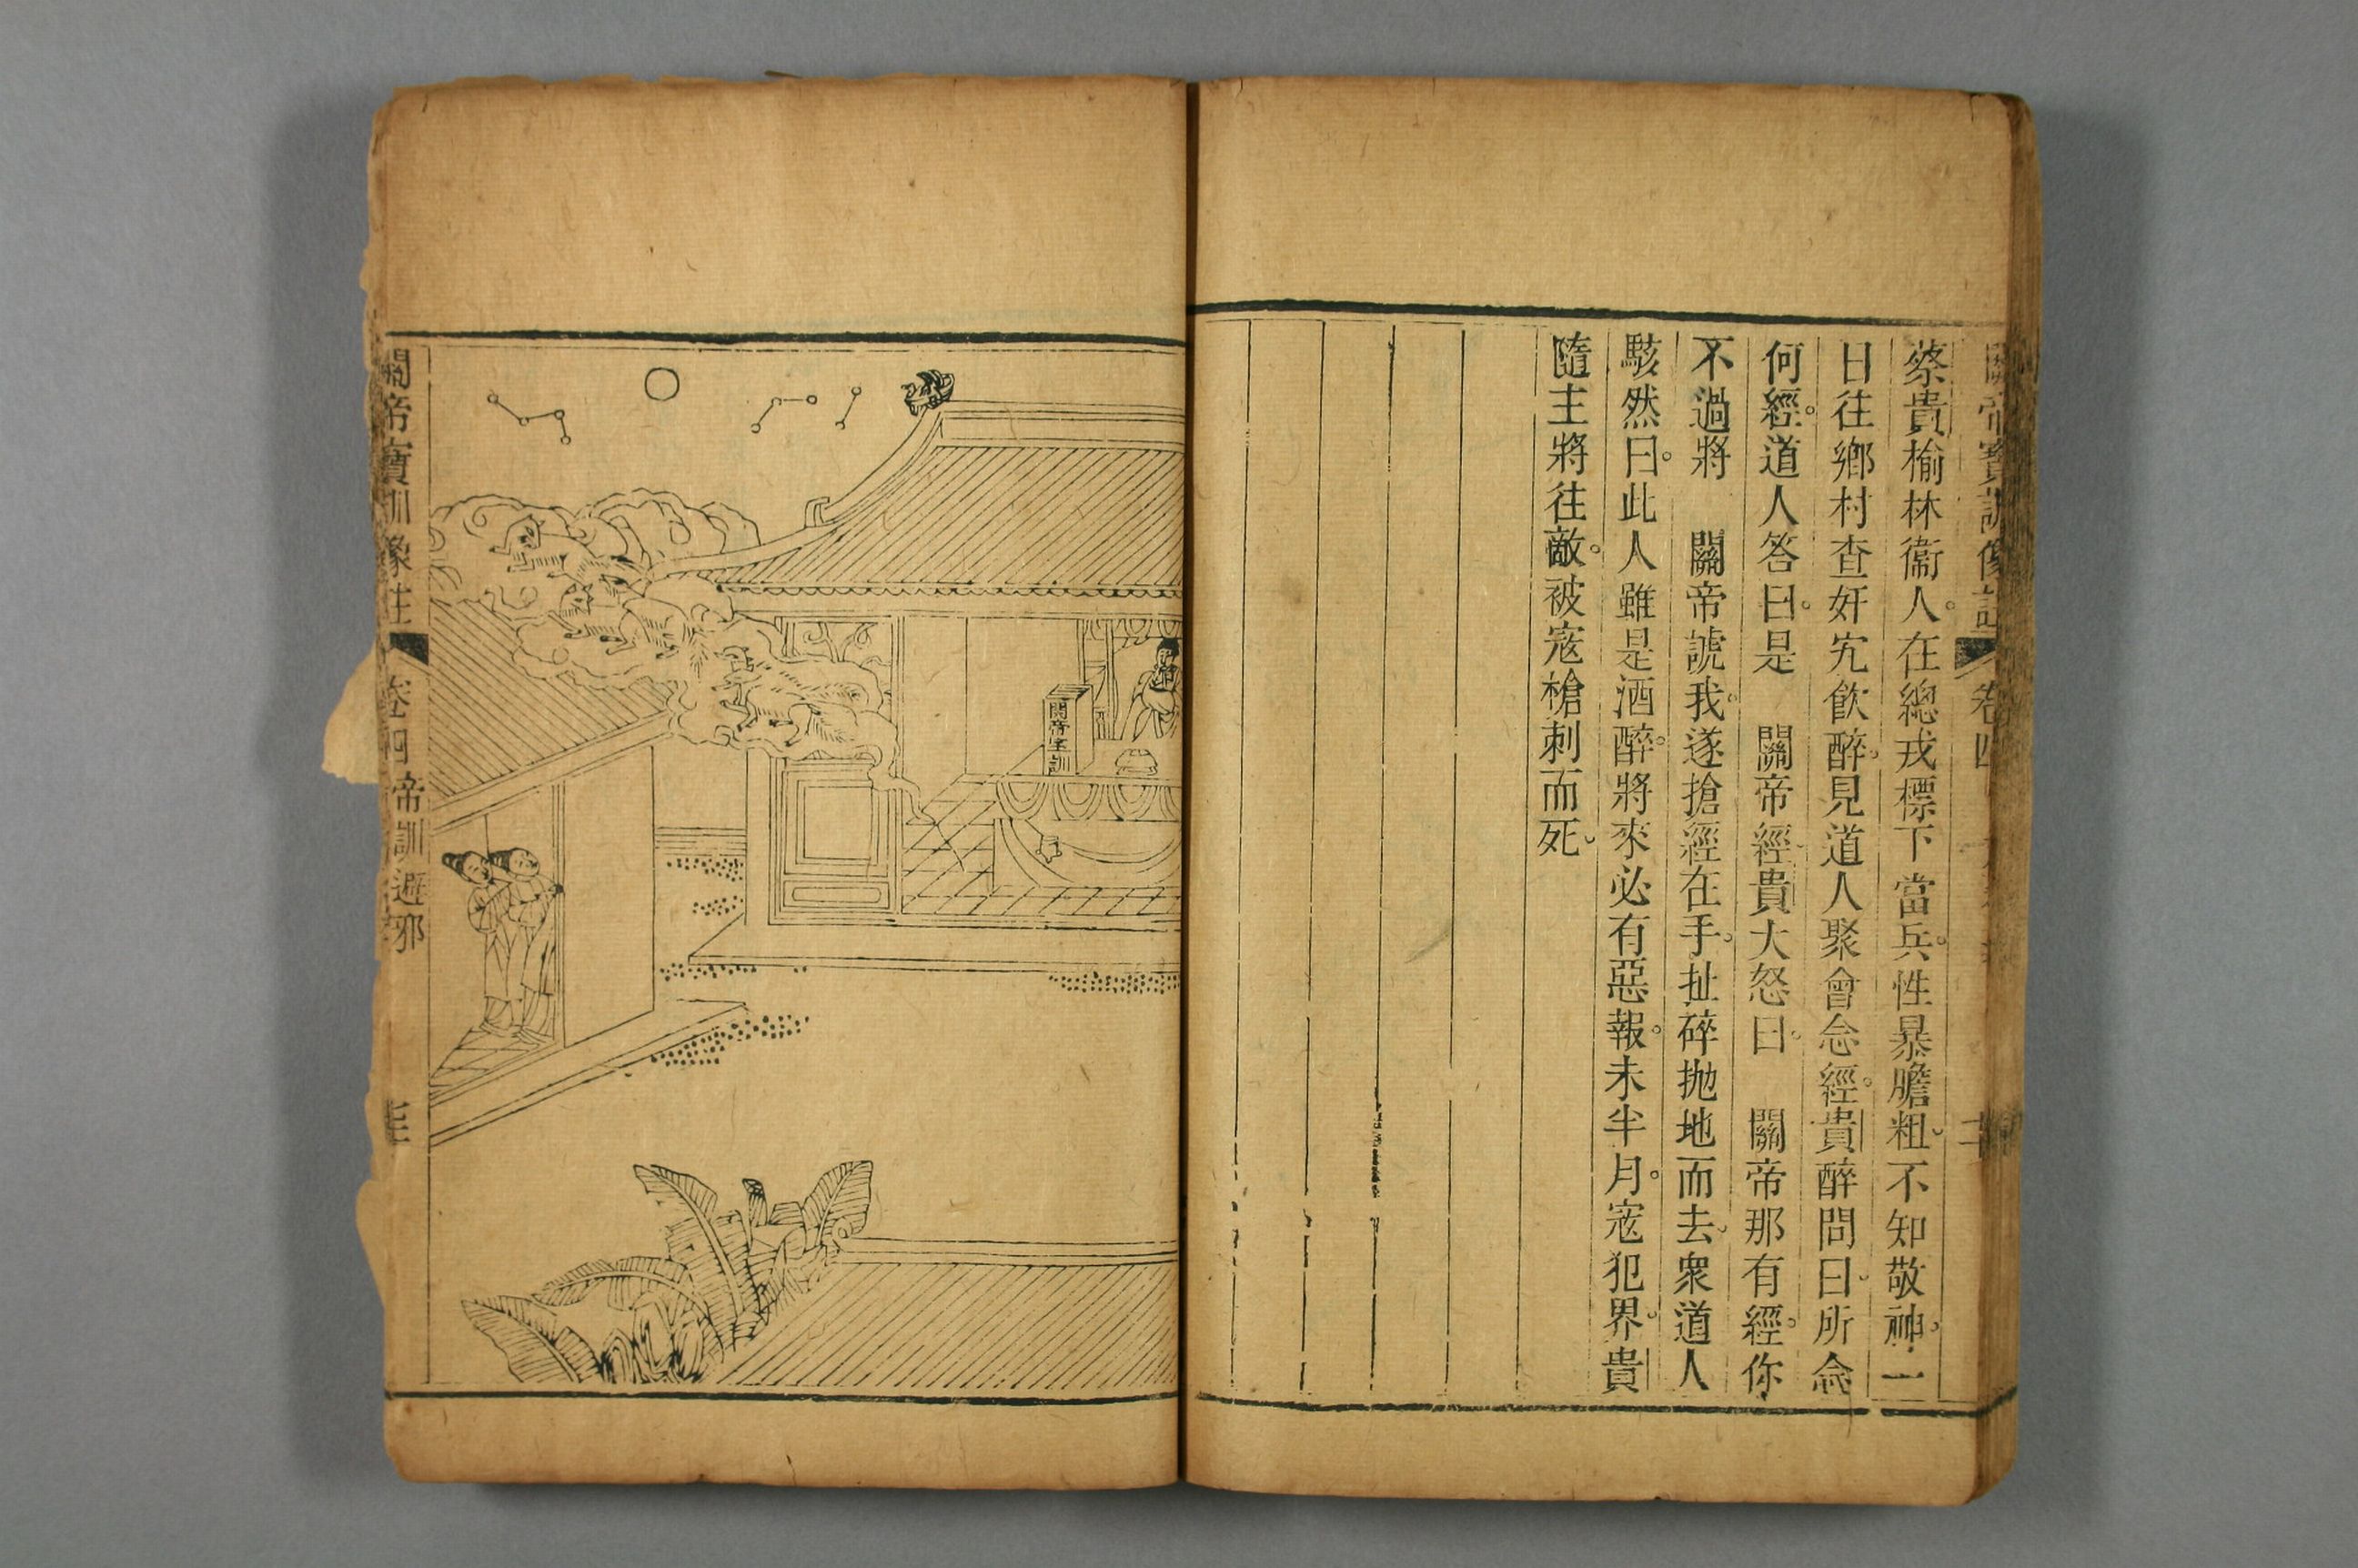 蔡貴榆林衞人。在總戎標下當兵。性暴膽粗。不知敬神。一
日往鄉村查奸宄飲醉。見道人聚會念經。貴醉問曰。所念
何經。道人答曰。是 關帝經。貴大怒曰。 關帝那有經。你
不過將 關帝謊我。遂搶經在手。扯碎拋地而去。衆道人
駭然曰。此人雖是酒醉。將來必有惡報。未半月。寇犯界。貴
隨主將往敵。被寇槍刺而死。
關帝寶訓
關帝寶訓像註 卷四 帝訓避邪